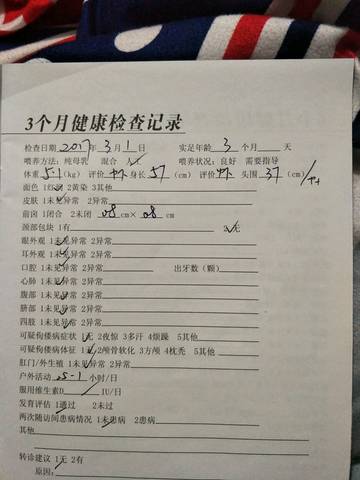 3个月健康检查记录
检查日期 2017年 3月 1日 实足年龄 3 个月 天
喂养方法：纯母乳 混合 人工 喂养状况：良好 需要指导
体重 5.1(kg) 评价 中- 身长 57 (cm) 评价 中- 头围 37 (cm)
面色 1红润 2黄染 3其他
皮肤 1未见异常 2异常
前囟 1闭合 2未闭 0.8 cm× 0.8 cm
颈部包块 1有 2无
眼外观 1未见异常 2异常
耳外观 1未见异常 2异常
口腔 1未见异常 2异常 出牙数（颗）
心肺 1未见异常 2异常
腹部 1未见异常 2异常
脐部 1未见异常 2异常
四肢 1未见异常 2异常
可疑佝偻病症状 1无 2夜惊 3多汗 4烦躁 5其他
可疑佝偻病体征 1无 2颅骨软化 3方颅 4枕秃 5其他
肛门/外生殖 1未见异常 2异常
户外活动 0.5-1 小时/日
服用维生素D IU/日
发育评估 1通过 2未过
两次随访间患病情况 1未患病 2患病
其他
转诊建议 1无 2有
原因：